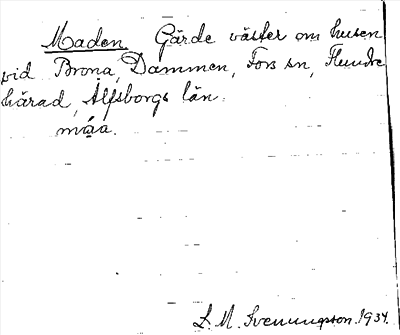 Maden. Gärde väster om husen
vid Brona, Dammen, Fors sn, Flundre
härad, Älfsborgs län.
måa.
L. M. Svenungsson. 1934.